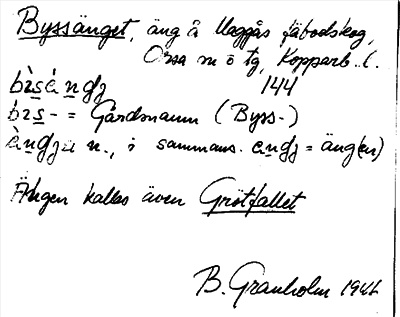 Byssänget, äng å Maggås fäbodskog,
Orsa sn o tg, Kopparb. l.
144
bìsèŋdj
bìs- = Gårdsnamn (Byss-)
ɛ̀ŋdja n., i sammans. ɛŋdj = äng(en)
Ängen kallas även Grötfallet
B. Granholm 1944